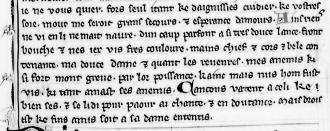 ie ne vous quier. fors seul itant ke daignissies cuidier. ke vostres
soie. mout me seroit grant secours. & esperance damours. Ainsi
ne vi en li ne mait navre. dun caup parfont a sa tres douce lance. front
bouche & nes iex vis fres couloure. mains chief & cors & bele con
tenance. ma douce dame & quant les reverres. mes anemis ki
si font mont greve. par lor poissance. kainc mais nus hom fust
vis. ki tant amast ses anemis. Cancons va tent a celi ke
bien ses. & se li di pour paour ai chante. & en doutance. mais drois
est ke fins amis soit a sa dame ententis.